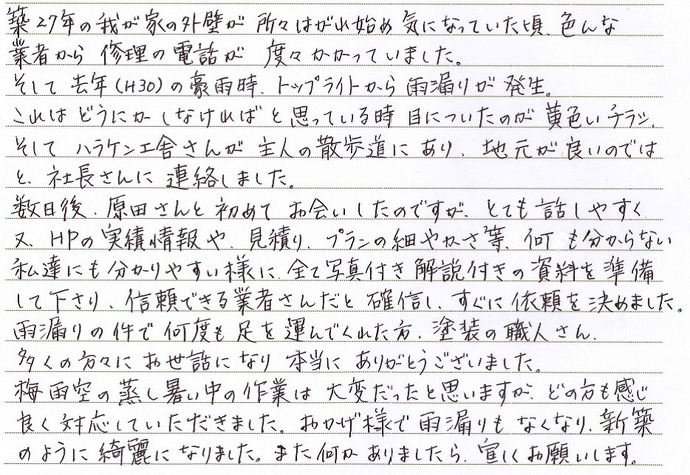 築27年の我が家の外壁が所々はがれ始め気になっていた頃、色んな
業者から修理の電話が度々かかっていました。
そして去年(H30)の豪雨時、トップライトから雨漏りが発生。
これはどうにかしなければと思っている時目についたのが黄色いチラシ、
そしてハラケン工舎さんが主人の散歩道にあり、地元が良いのでは
と、社長さんに連絡しました。
数日後、原田さんと初めてお会いしたのですが、とても話しやすく
又、HPの実績情報や、見積り、プランの細やかさ等、何も分からない
私達にも分かりやすい様に、全て写真付き解説付きの資料を準備
して下さり、信頼できる業者さんだと確信し、すぐに依頼を決めました。
雨漏りの件で何度も足を運んでくれた方、塗装の職人さん、
多くの方々にお世話になり本当にありがとうございました。
梅雨空の蒸し暑い中の作業は大変だったと思いますが、どの方も感じ
良く対応していただきました。おかげ様で雨漏りもなくなり、新築
のように綺麗になりました。また何かありましたら、宜しくお願いします。